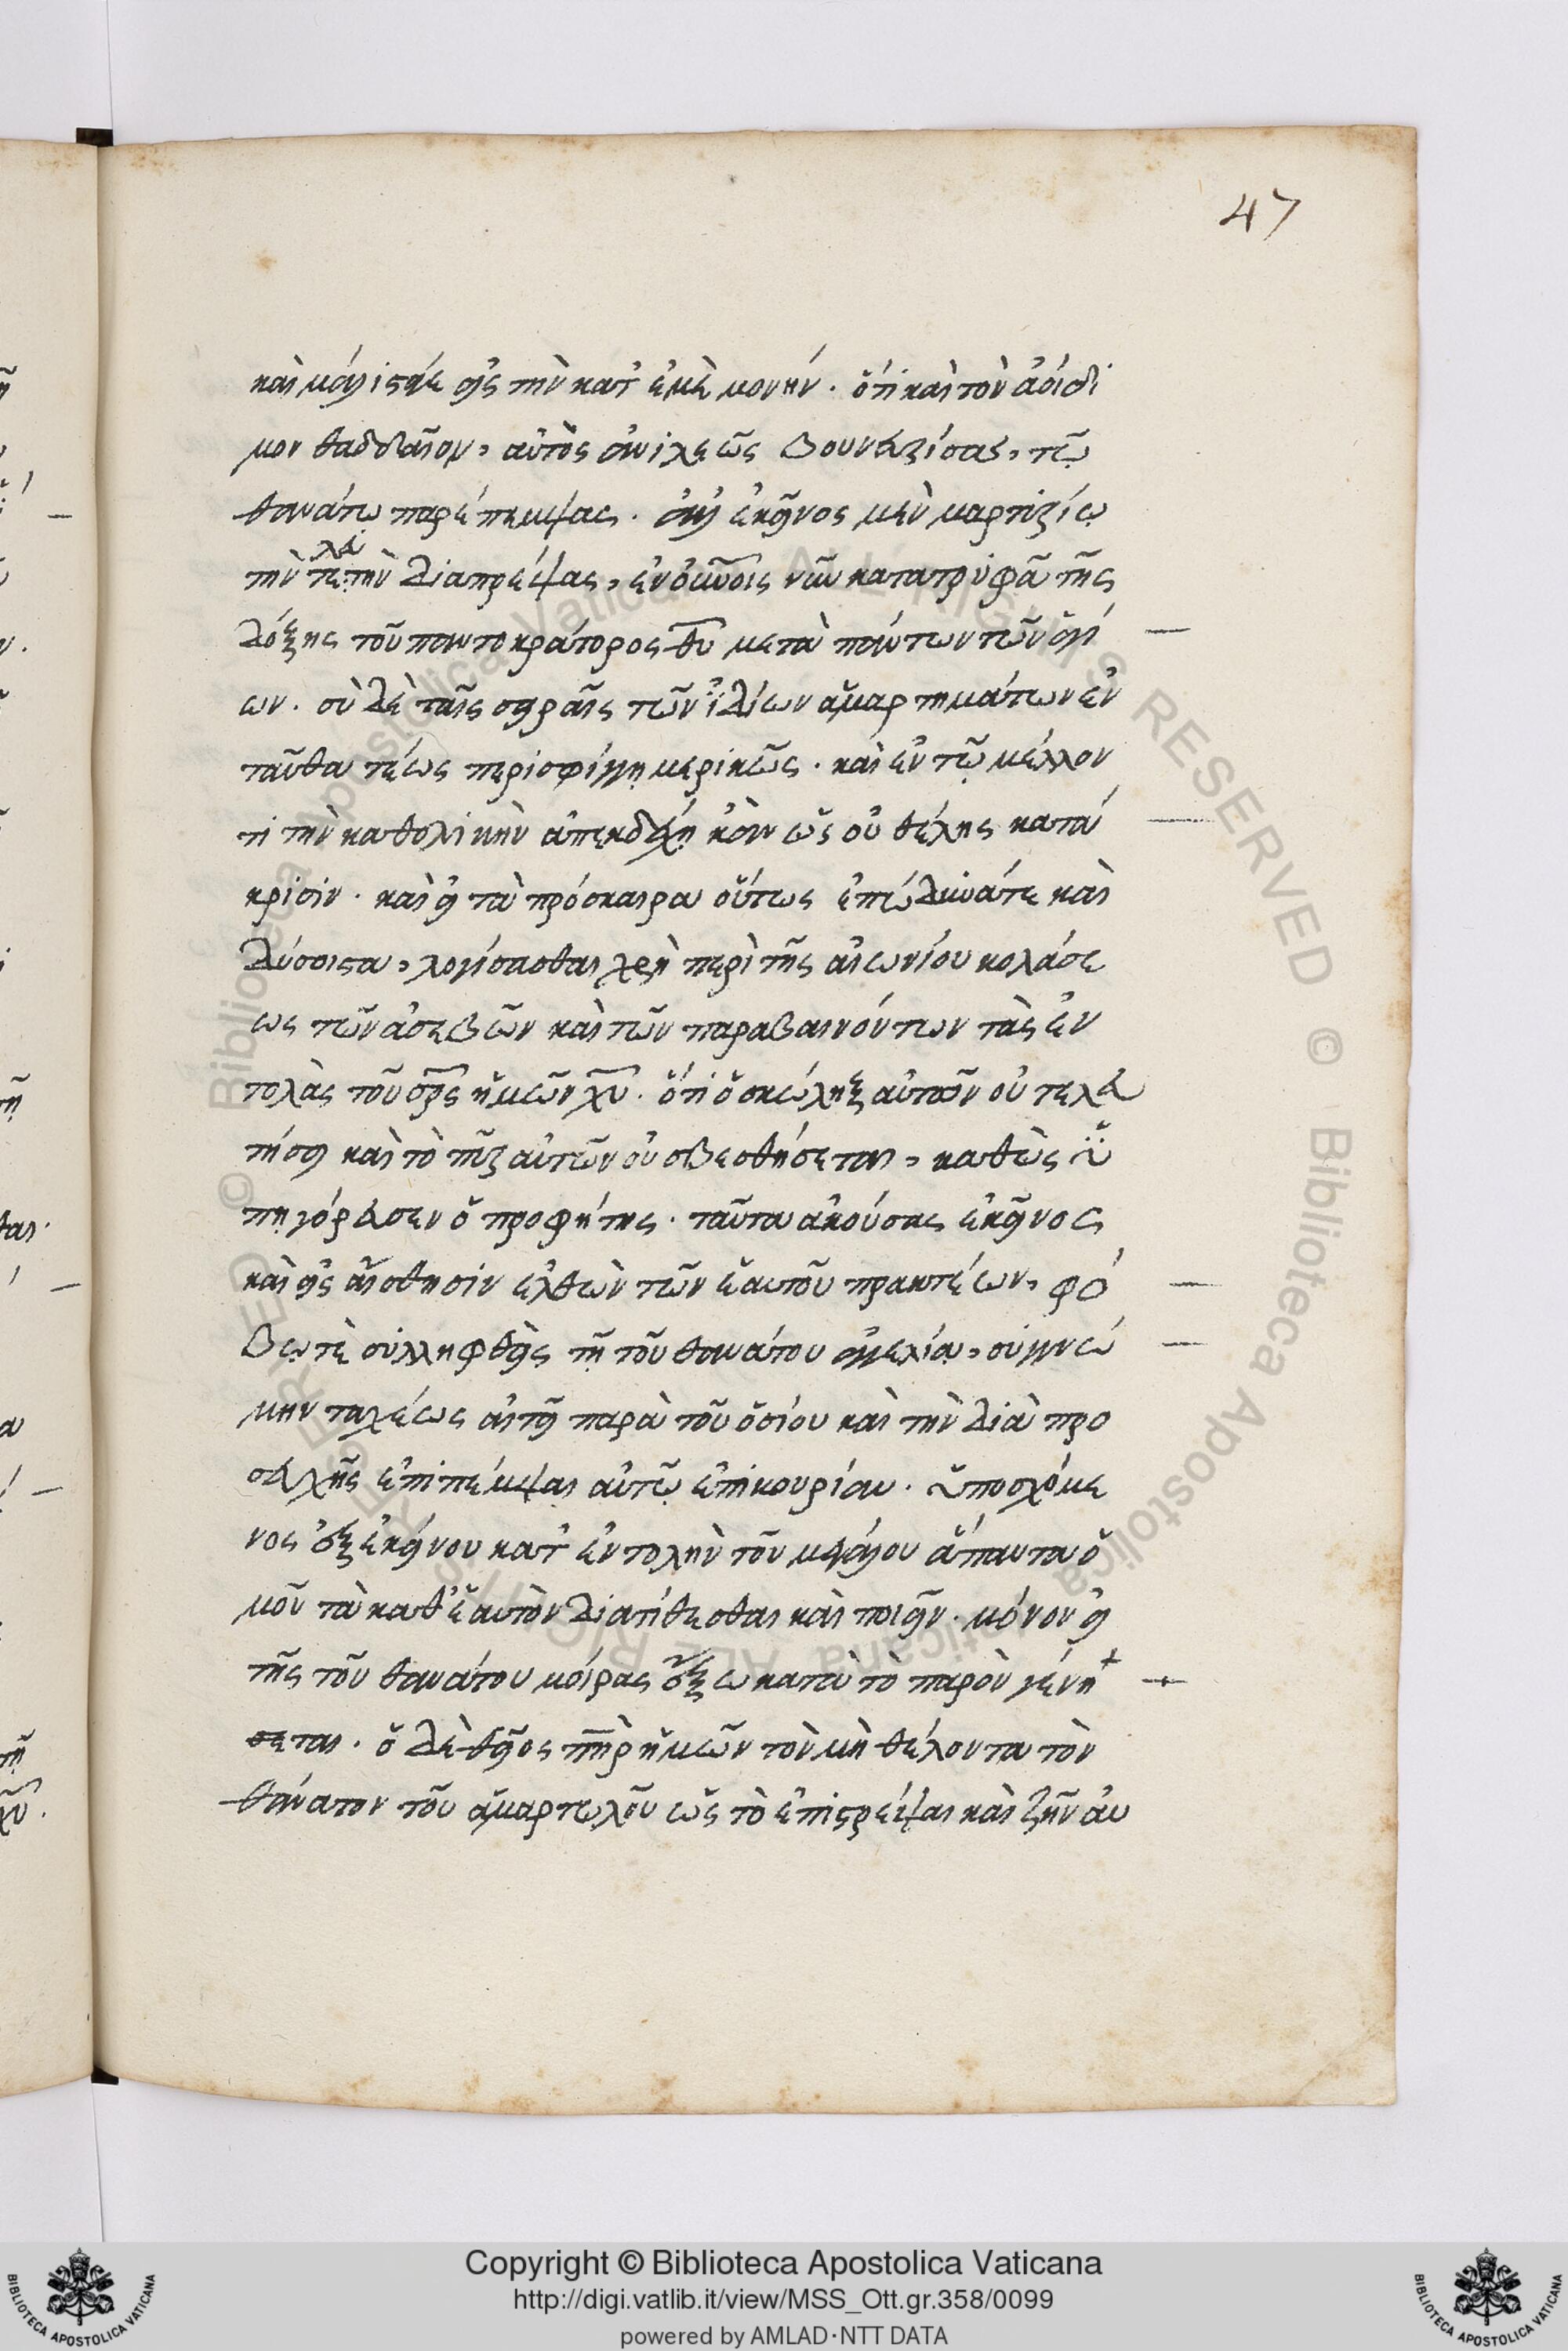 47
καὶ μάλιστά γε εἰς τὴν κατ' ἐμὲ μονήν. ὅτι καὶ τὸν ἀοίδι
μον θαδδαῖον, αὐτὸς ἀνιλεῶς βουνευρίσας, τῶ
θανάτω παρέπεμψας. ἀλλ' ἐκεῖνος μὲν μαρτυρίω
τὴν τελευτὴν διαπρέψας, ἐν οὐνοῖς νῦν κατατρυφᾶ τῆς
δόξης τοῦ παντοκράτορος θυ μετὰ πάντων τῶν ἁγί
ων. σὺ δὲ ταῖς σειραῖς τῶν ἰδίων ἁμαρτημάτων ἐν
ταῦθα τέως περισφίγγη μερικῶς. καὶ ἐν τῶ μέλλον
τι τὴν καθολικὴν ἀπεκδέχη κἂν ὡς οὐ θέλης κατά
κρισιν. καὶ εἰ τὰ πρόσκαιρα οὕτως ἐπώδυνά τε καὶ
δύσοιστα, λογίσασθαι χρὴ περὶ τῆς αἰωνίου κολάσε
ως τῶν ἀσεβῶν καὶ τῶν παραβαινόντων τὰς ἐν
τολὰς τοῦ σρς ἡμῶν χυ. ὅτι ὁ σκώληξ αὐτῶν οὐ τελευ
τήσει καὶ τὸ πῦρ αὐτῶν οὐ σβεσθήσεται, καθὼς ὑ
πηγόρευσεν ὁ προφήτης. ταῦτα ἀκούσας ἐκεῖνος
καὶ εἰς αἴσθησιν ἐλθὼν τῶν ἑαυτοῦ πρακτέων, φό
βω τὲ συλληφθεὶς τῆ τοῦ θανάτου ἀγγελία, συγγνώ
μην ταχέως αἰτεῖ παρὰ τοῦ ὁσίου καὶ τὴν διὰ προ
σευχῆς ἐπιπέμψαι αὐτῶ ἐπικουρίαν. ὑποσχόμε
νος ἐξ ἐκείνου κατ' ἐντολὴν τοῦ μεγάλου ἅπαντα ὁ
μοῦ τὰ καθ' ἑαυτὸν διατίθεσθαι καὶ ποιεῖν. μόνον εἰ
τῆς τοῦ θανάτου μοίρας ἔξω κατὰ τὸ παρὸν γένη
σεται. ὁ δὲ θεῖος πηρ ἡμῶν τὸν μὴ θέλοντα τὸν
θάνατον τοῦ ἁμαρτωλοῦ ὡς τὸ ἐπιστρέψαι καὶ ζῆν αυ
Copyright © Biblioteca Apostolica Vaticana
http://digi.vatlib.it/view/MSS_Ott.gr.358/0099
powered by AMLAD·NTT DATA